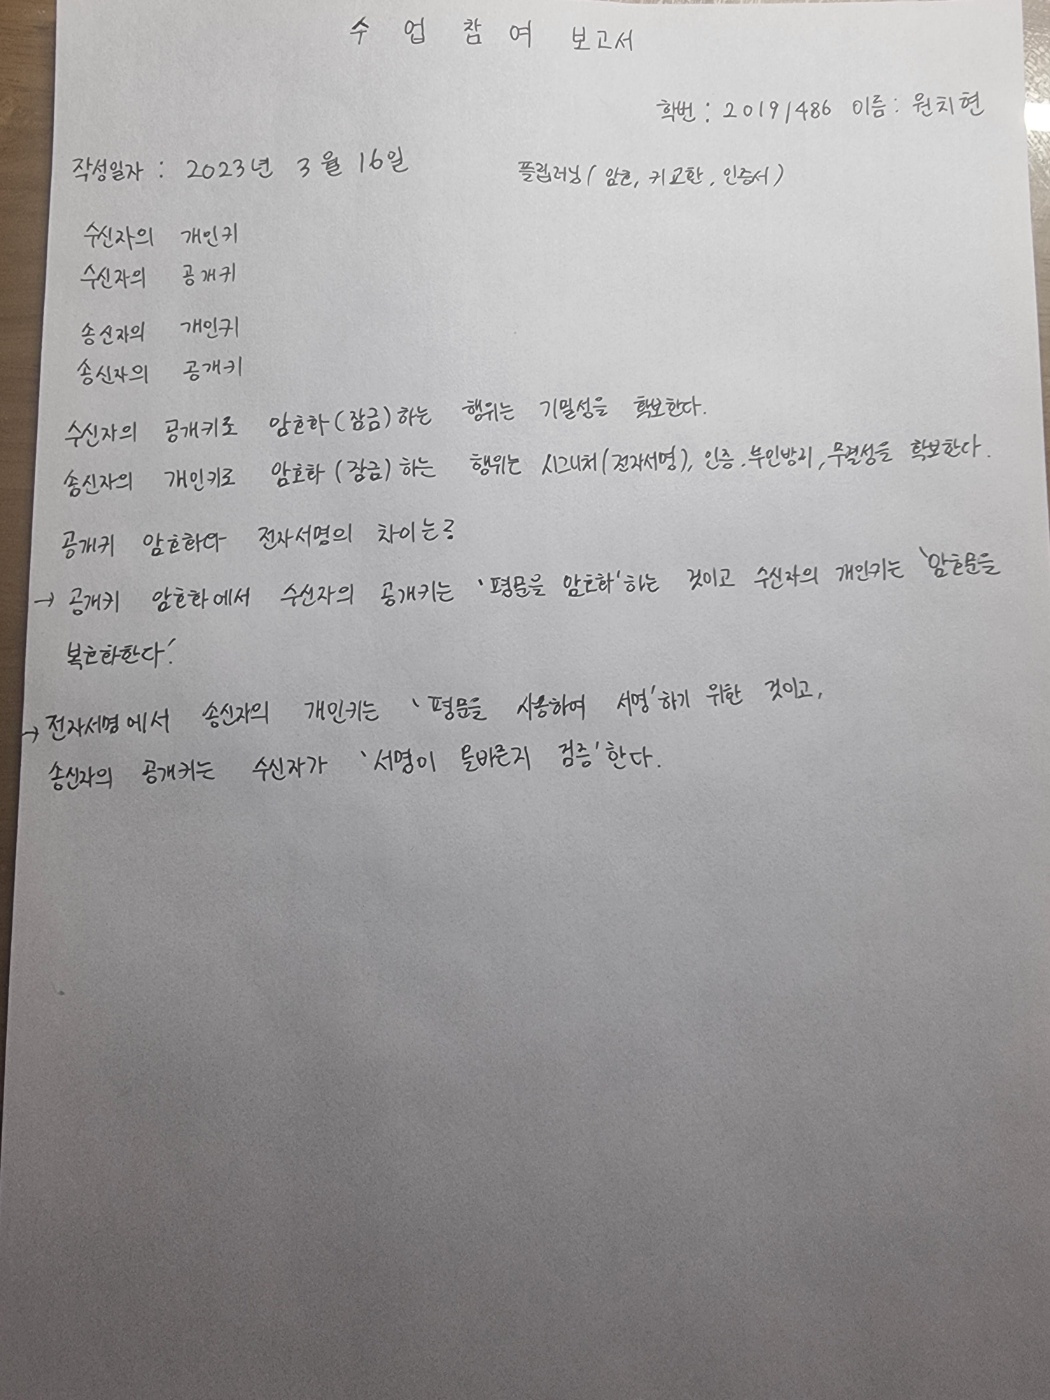 수 업 참 여 보고서
학번 : 20191486 이름 : 원치현
작성일자 : 2023년 3월 16일 플립러닝 ( 암호, 키교환, 인증서 )
수신자의 개인키
수신자의 공개키
송신자의 개인키
송신자의 공개키
수신자의 공개키로 암호화(잠금)하는 행위는 기밀성을 확보한다.
송신자의 개인키로 암호화(잠금)하는 행위는 시그니처(전자서명), 인증, 부인방지, 무결성을 확보한다.
공개키 암호화와 전자서명의 차이는?
→ 공개키 암호화에서 수신자의 공개키는 '평문을 암호화'하는 것이고 수신자의 개인키는 '암호문을
복호화한다'.
→ 전자서명에서 송신자의 개인키는 '평문을 사용하여 서명'하기 위한 것이고,
송신자의 공개키는 수신자가 '서명이 올바른지 검증'한다.